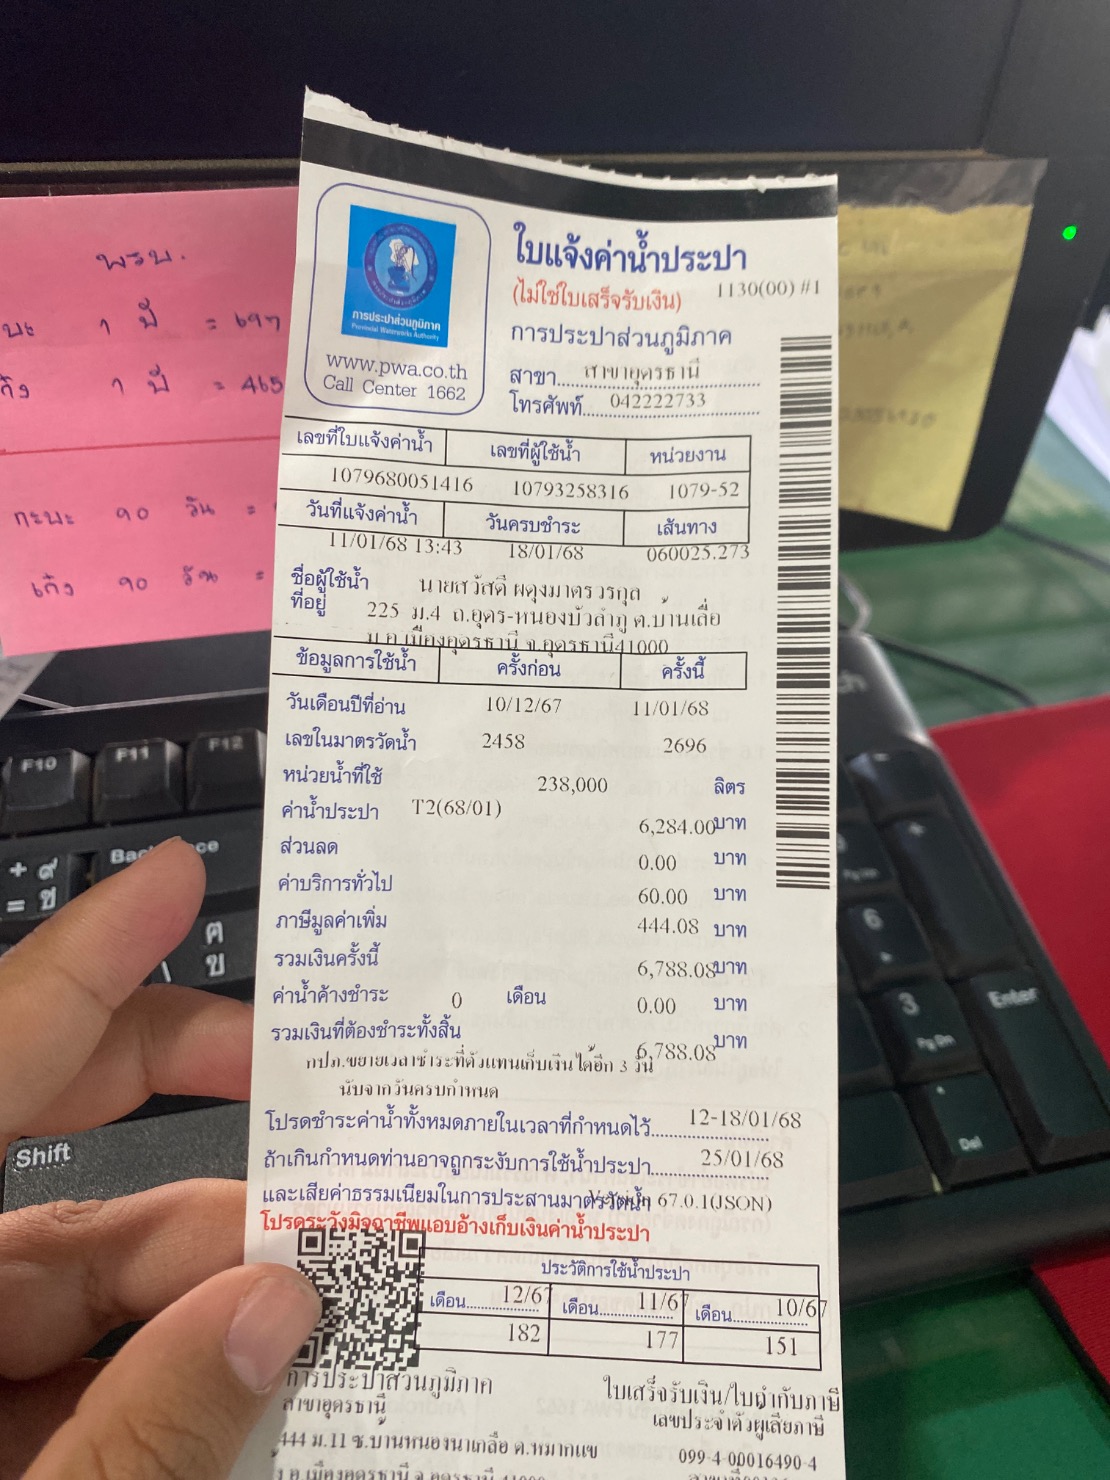 พรบ.
บะ 1 ปี = 697
เก๋ง 1 ปี = 465
กะบะ 90 วัน =
เก๋ง 90 วัน =
การประปาส่วนภูมิภาค
Provincial Waterworks Authority
www.pwa.co.th
Call Center 1662
ใบแจ้งค่าน้ำประปา
(ไม่ใช่ใบเสร็จรับเงิน) 1130(00) #1
การประปาส่วนภูมิภาค
สาขา สาขาอุดรธานี
โทรศัพท์ 042222733
เลขที่ใบแจ้งค่าน้ำ เลขที่ผู้ใช้น้ำ หน่วยงาน
1079680051416 10793258316 1079-52
วันที่แจ้งค่าน้ำ วันครบชำระ เส้นทาง
11/01/68 13:43 18/01/68 060025.273
ชื่อผู้ใช้น้ำ นายสวัสดี ผดุงมาตรวรกุล
ที่อยู่ 225 ม.4 ถ.อุดร-หนองบัวลำภู ต.บ้านเลื่อ
ม อ.เมืองอุดรธานี จ.อุดรธานี41000
ข้อมูลการใช้น้ำ ครั้งก่อน ครั้งนี้
วันเดือนปีที่อ่าน 10/12/67 11/01/68
เลขในมาตรวัดน้ำ 2458 2696
หน่วยน้ำที่ใช้ 238,000 ลิตร
ค่าน้ำประปา T2(68/01) 6,284.00 บาท
ส่วนลด 0.00 บาท
ค่าบริการทั่วไป 60.00 บาท
ภาษีมูลค่าเพิ่ม 444.08 บาท
รวมเงินครั้งนี้ 6,788.08 บาท
ค่าน้ำค้างชำระ 0 เดือน 0.00 บาท
รวมเงินที่ต้องชำระทั้งสิ้น 6,788.08 บาท
กปภ.ขยายเวลาชำระที่ตัวแทนเก็บเงินได้อีก 3 วัน
นับจากวันครบกำหนด
โปรดชำระค่าน้ำทั้งหมดภายในเวลาที่กำหนดไว้ 12-18/01/68
ถ้าเกินกำหนดท่านอาจถูกระงับการใช้น้ำประปา 25/01/68
และเสียค่าธรรมเนียมในการประสานมาตรวัดน้ำ Version 67.0.1(JSON)
โปรดระวังมิจฉาชีพแอบอ้างเก็บเงินค่าน้ำประปา
ประวัติการใช้น้ำประปา
เดือน 12/67 เดือน 11/67 เดือน 10/67
182 177 151
การประปาส่วนภูมิภาค ใบเสร็จรับเงิน/ใบกำกับภาษี
สาขาอุดรธานี เลขประจำตัวผู้เสียภาษี
444 ม.11 ซ.บ้านหนองนาเกลือ ต.หมากแข 099-4-00016490-4
้ง อ.เมืองอุดรธานี จ.อุดรธานี 41000
F10
F11
F12
Shift
6
3
Pg Dn
Enter
Del